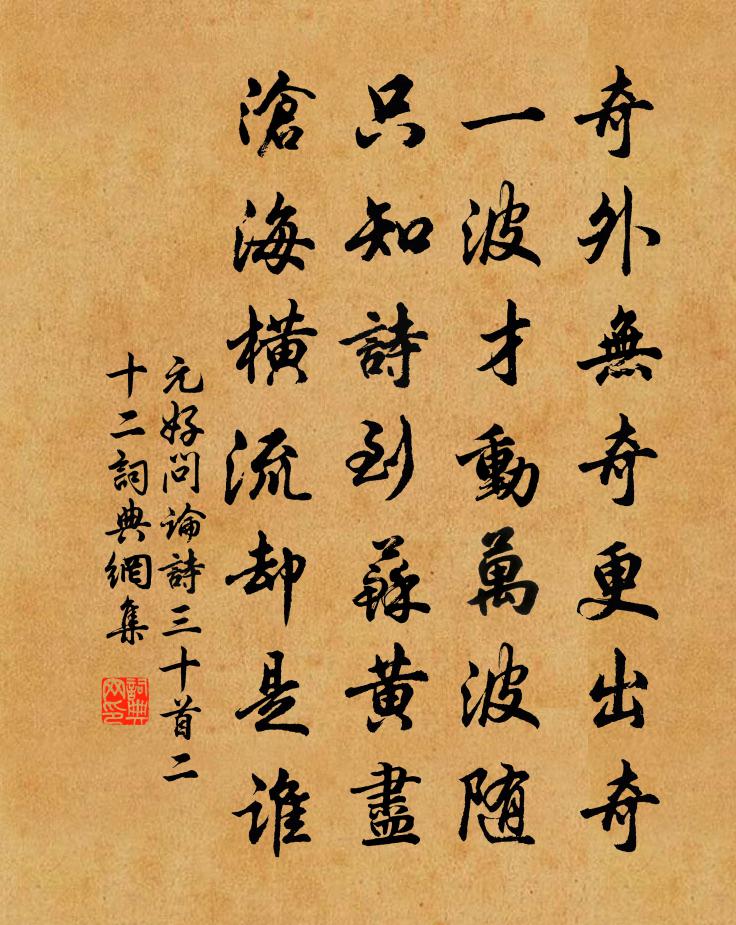 奇外無奇更出奇
一波才動萬波随
只知詩到蘇黃盡
滄海橫流却是谁
元好問論詩三十首二
十二詞典網集
詞典
网印